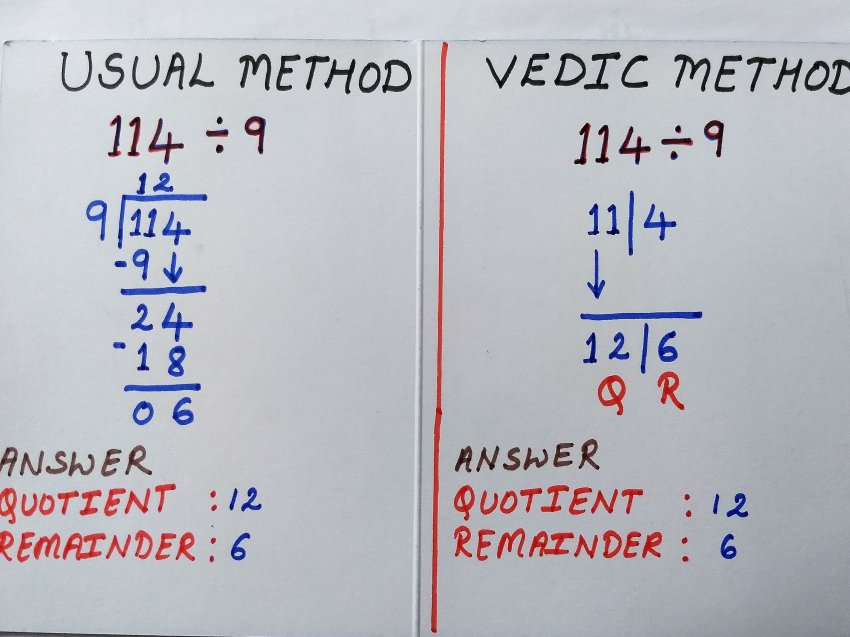 USUAL METHOD
114 ÷ 9
12
9 114
-9 ↓
24
-18
06
ANSWER
QUOTIENT : 12
REMAINDER : 6
VEDIC METHOD
114 ÷ 9
11|4
↓
12|6
Q R
ANSWER
QUOTIENT : 12
REMAINDER : 6